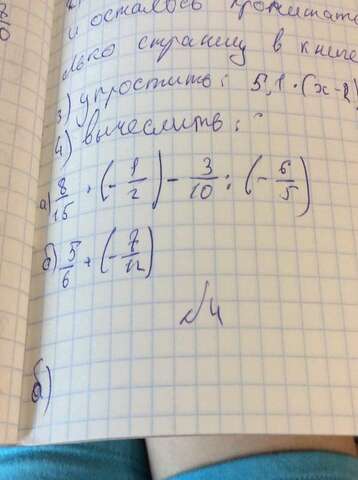 и осталось прочитат
лько страниц в книге
3) упростить: 5,1·(x-2
4) вычеслить:
а) 8/15 · (-1/2) - 3/10 : (-6/5)
б) 5/6 + (-7/12)
№4
б)